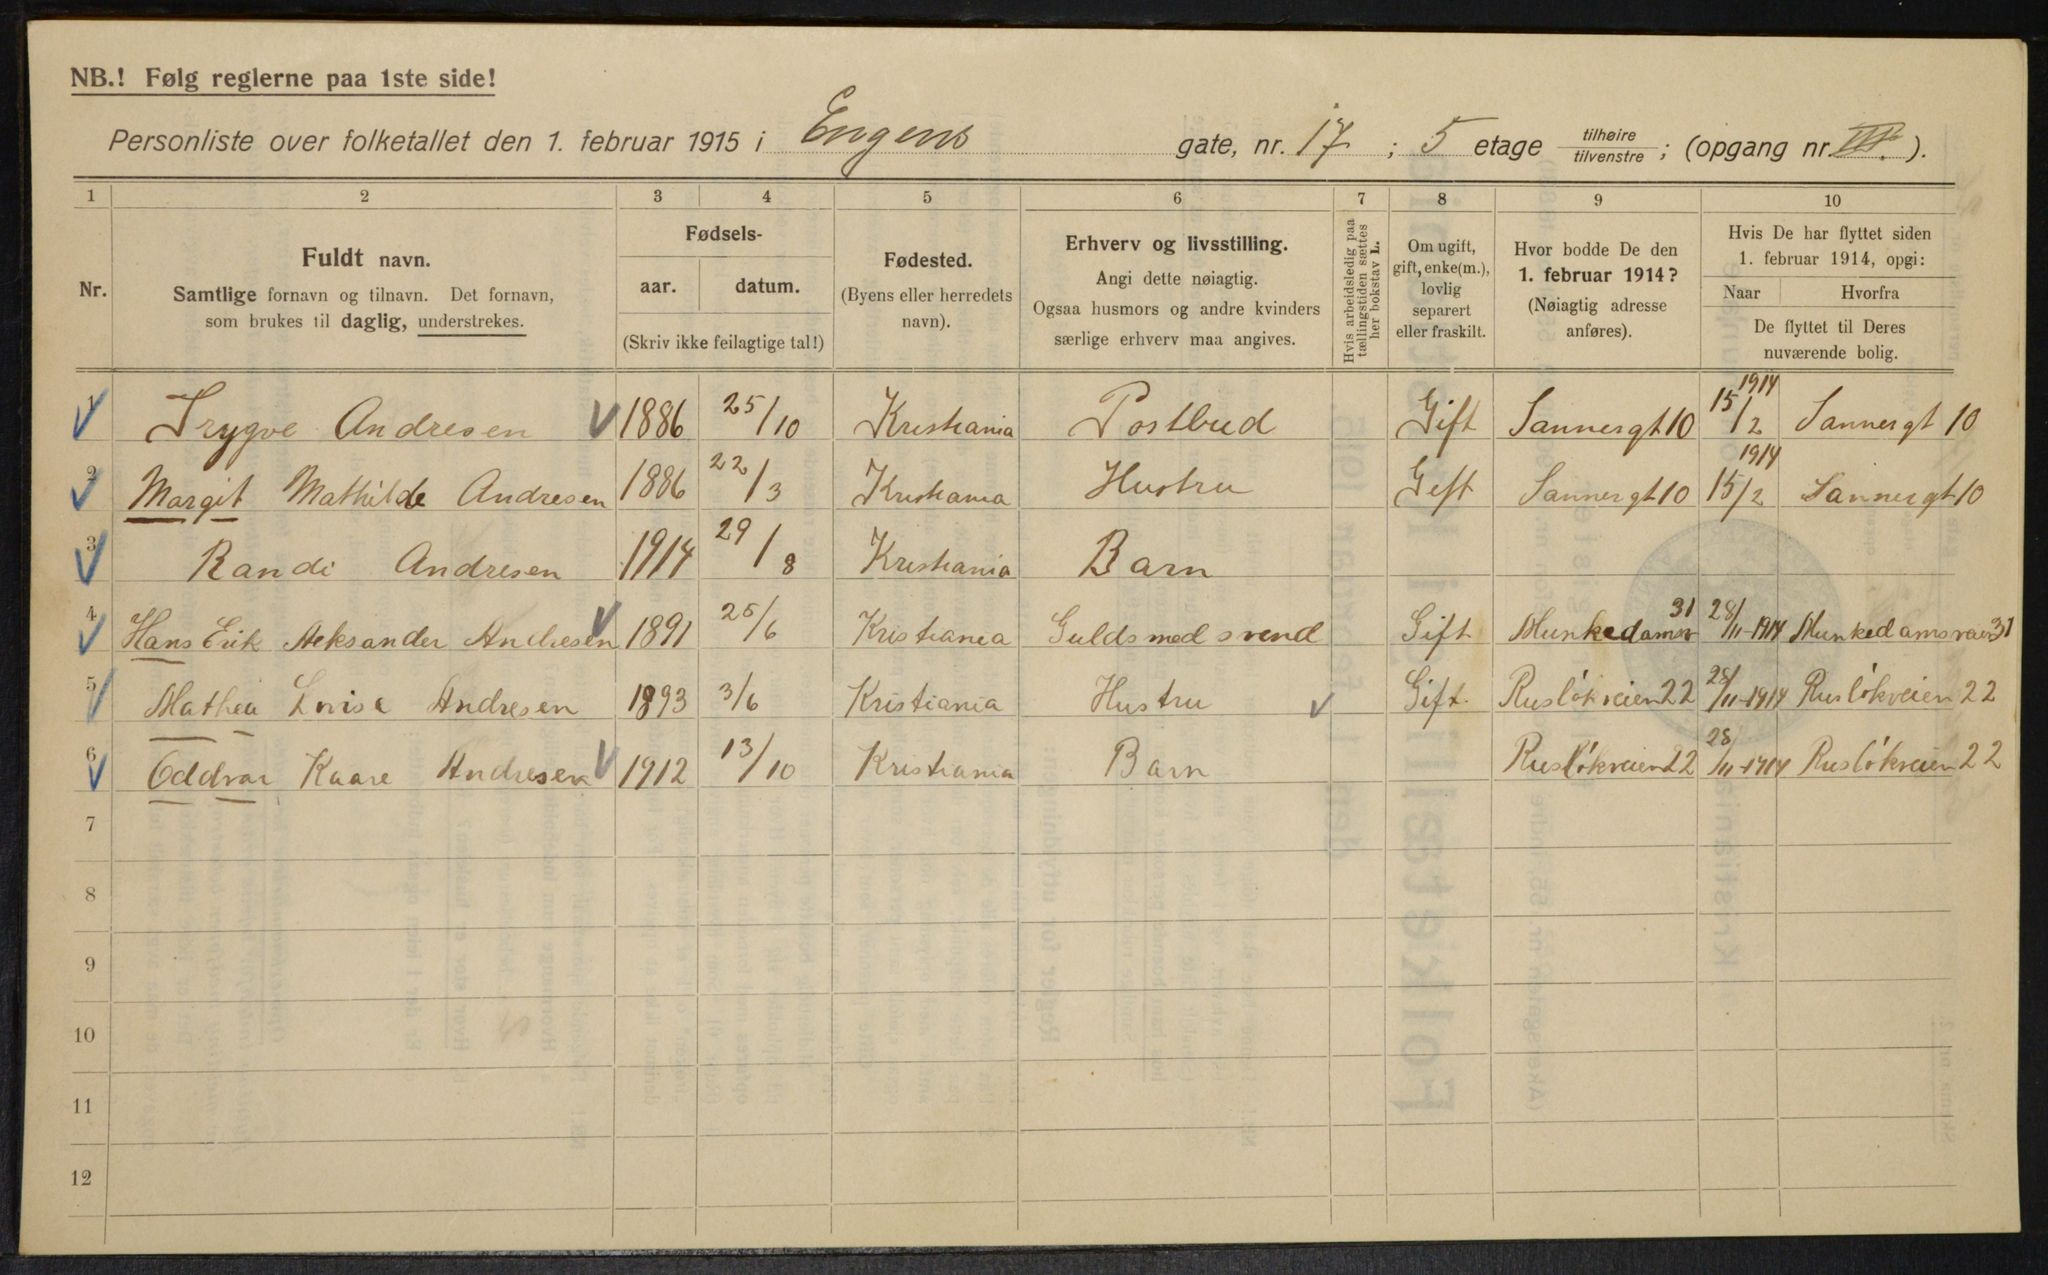 NB.! Følg reglerne paa 1ste side!
Personliste over folketallet den 1. februar 1915 i Engens gate, nr. 17; 5 etage tilhøire tilvenstre; (opgang nr. III.).
1 2 3 4 5 6 7 8 9 10
Nr.
Fuldt navn.
Samtlige fornavn og tilnavn. Det fornavn,
som brukes til daglig, understrekes.
Fødsels-
aar. datum.
(Skriv ikke feilagtige tal!)
Fødested.
(Byens eller herredets
navn).
Erhverv og livsstilling.
Angi dette nøiagtig.
Ogsaa husmors og andre kvinders
særlige erhverv maa angives.
Hvis arbeidsledig paa
tællingstiden sættes
her bokstav L.
Om ugift,
gift, enke(m.),
lovlig
separert
eller fraskilt.
Hvor bodde De den
1. februar 1914?
(Nøiagtig adresse
anføres).
Hvis De har flyttet siden
1. februar 1914, opgi:
Naar Hvorfra
De flyttet til Deres
nuværende bolig.
1 Trygve Andresen 1886 25/10 Kristiania Postbud Gift Sannergt 10 15/2 1914 Sannergt 10
2 Margit Mathilde Andresen 1886 22/3 Kristiania Hustru Gift Sannergt 10 15/2 1914 Sannergt 10
3 Randi Andresen 1914 29/8 Kristiania Barn
4 Hans Erik Aleksander Andresen 1891 25/6 Kristiania Guldsmedsvend Gift Munkedamsv 31 28/11-1914 Munkedamsveien 31
5 Mathea Lovise Andresen 1893 3/6 Kristiania Hustru Gift. Rusløkveien 22 28/11-1914 Rusløkveien 22
6 Oddvar Kaare Andresen 1912 13/10 Kristiania Barn Rusløkveien 22 28/11-1914 Rusløkveien 22
7
8
9
10
11
12